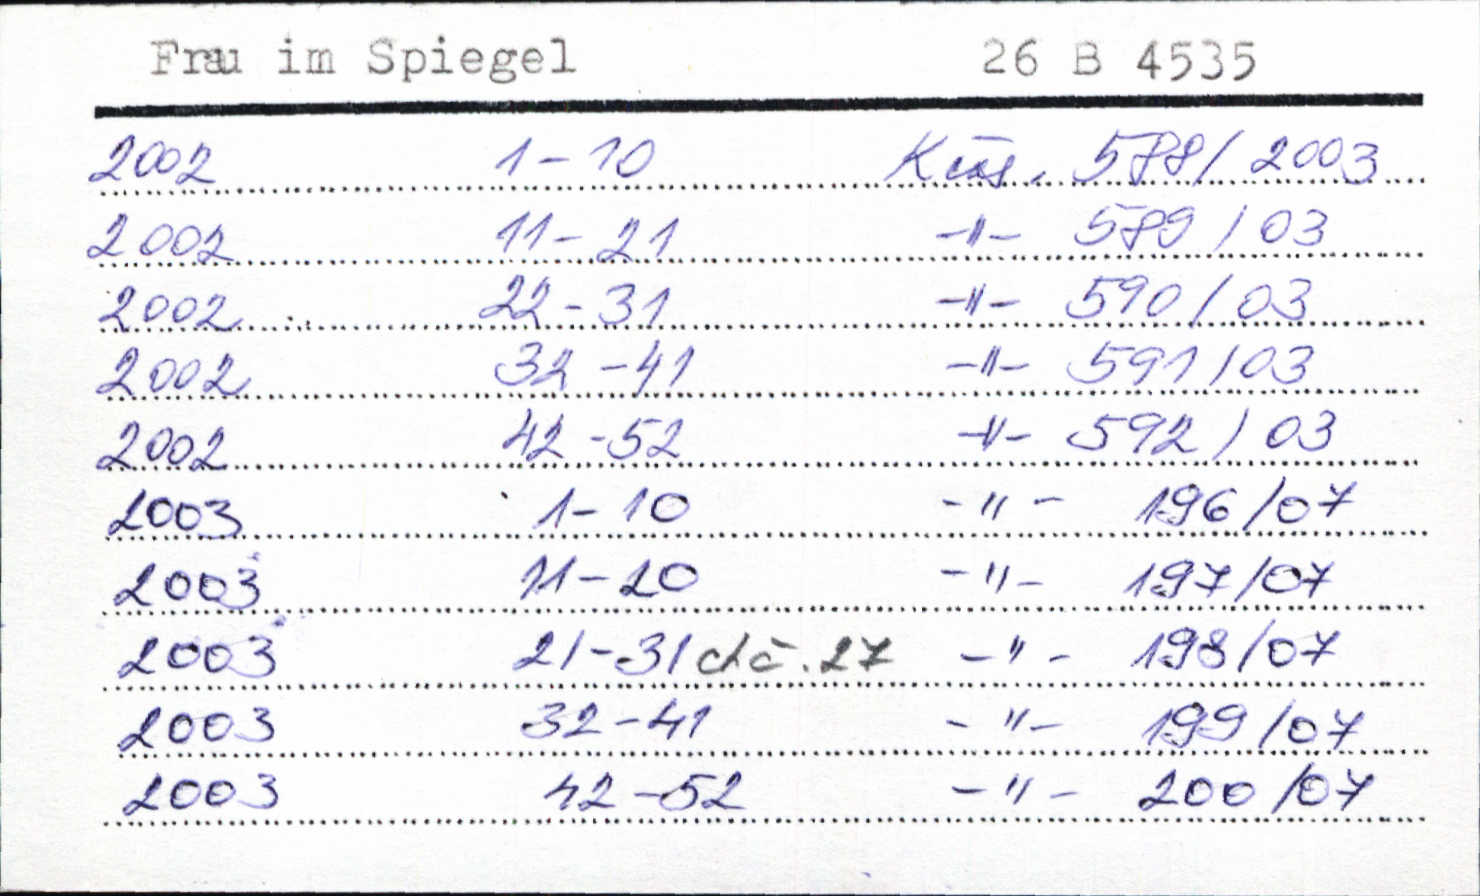 Frau im Spiegel 26 B 4535
2002 1-10 Kčs. 588/2003
2002 11-21 -"- 589/03
2002 22-31 -"- 590/03
2002 32-41 -"- 591/03
2002 42-52 -"- 592/03
2003 1-10 -"- 196/07
2003 11-20 -"- 197/07
2003 21-31 ch č. 27 -"- 198/07
2003 32-41 -"- 199/07
2003 42-52 -"- 200/07